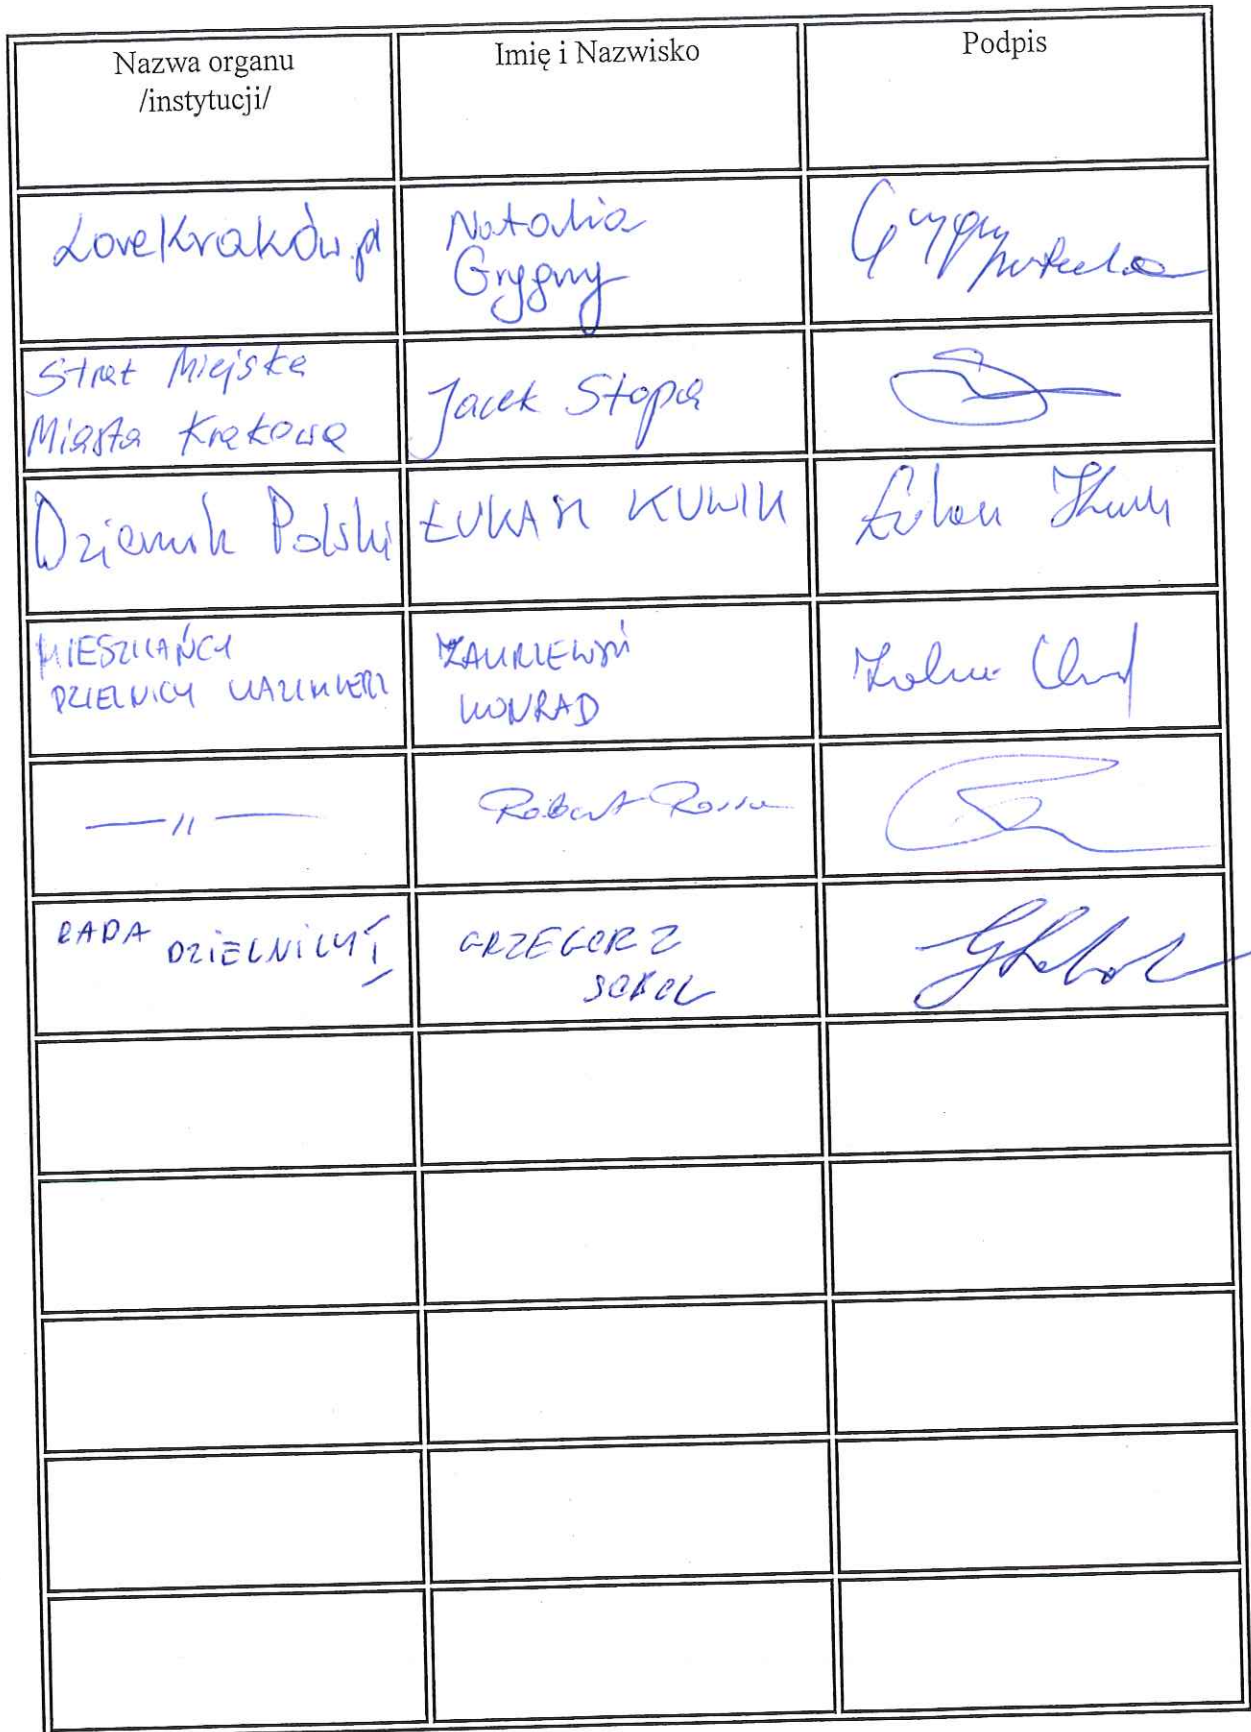 Nazwa organu
/instytucji/
Imię i Nazwisko
Podpis
LoveKraków.pl
Natalia
Grygny
Straż Miejska
Miasta Krakowa
Jacek Stopa
Dziennik Polski
ŁUKASZ KUWIK
MIESZKAŃCY
DZIELNICY KAZIMIERZ
ZAKRZEWSKI
KONRAD
—〃—
Robert
RADA DZIELNICY I
GRZEGORZ
SOKOL